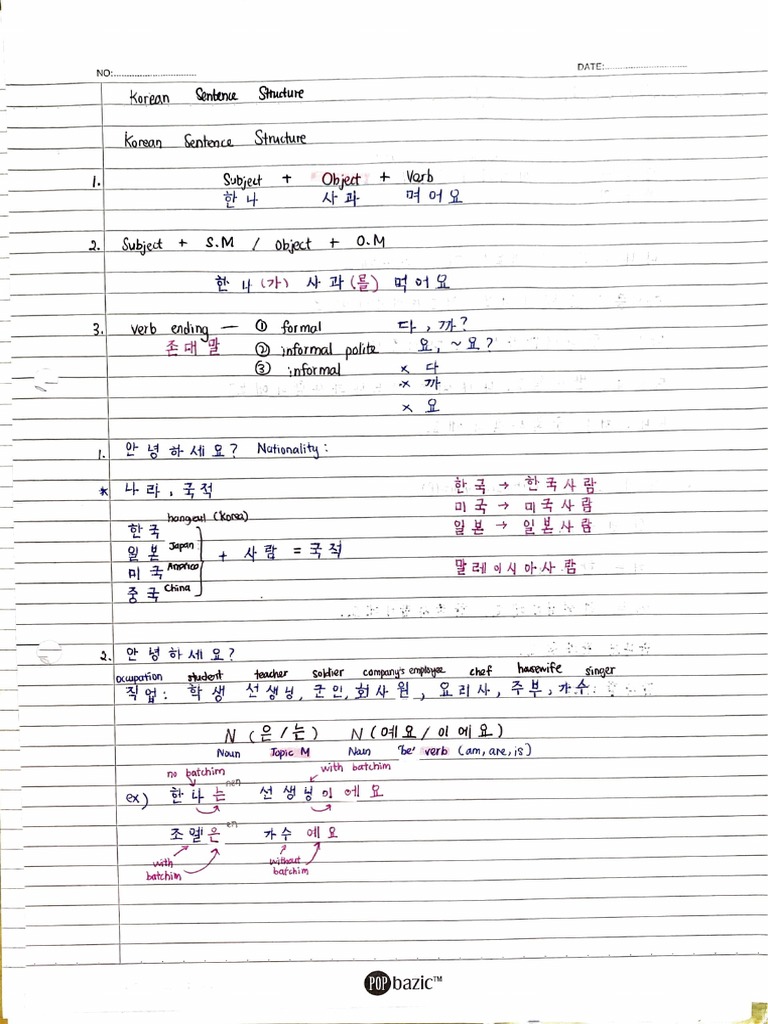 NO:
DATE:
Korean Sentence Structure
Korean Sentence Structure
1. Subject + Object + Verb
한나 사과 며어요
2. Subject + S.M / Object + O.M
한나(가) 사과(를) 먹어요
3. verb ending — ① formal 다, 까?
존대말 ② informal polite 요, ~요?
③ informal × 다
× 까
× 요
1. 안녕하세요? Nationality:
* 나라, 국적 한국 → 한국사람
한국 hangeul (Korea) 미국 → 미국사람
일본 Japan + 사람 = 국적 일본 → 일본사람
미국 America 말레이시아사람
중국 China
2. 안녕하세요?
occupation student teacher soldier company's employee chef housewife singer
직업: 학생 선생님, 군인, 회사원, 요리사, 주부, 가수
N (은/는) N (예요/이에요)
Noun Topic M Noun 'be' verb (am, are, is)
no batchim with batchim
nen
ex) 한나는 선생님이에요
en
조엘은 가수 예요
with batchim without batchim
POP bazic™